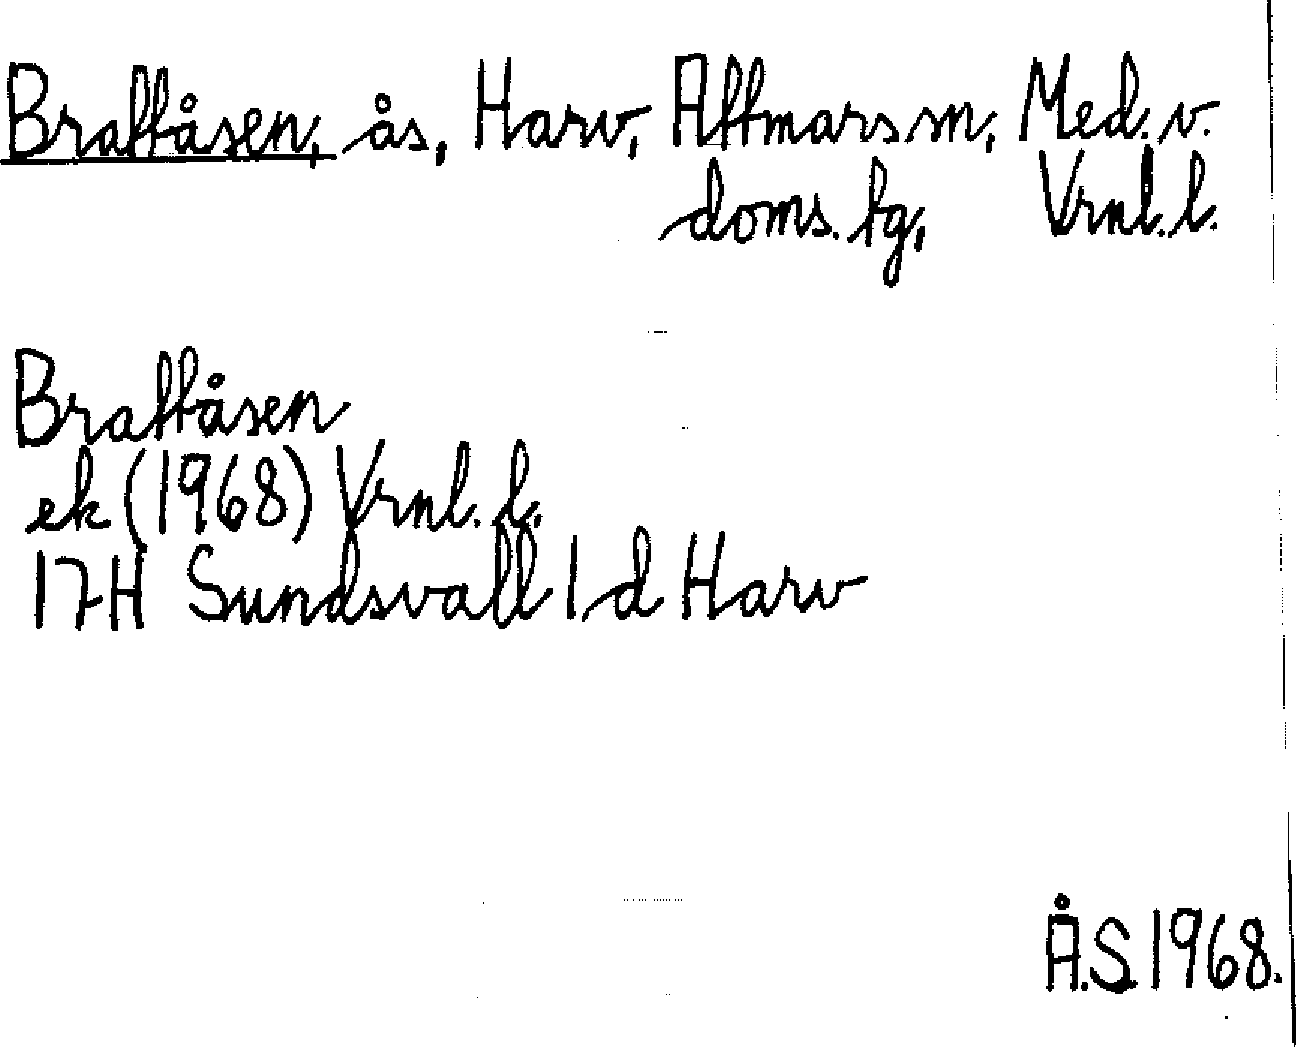 Brattåsen, ås, Harv, Attmars sn, Med. v.
doms. tg, Vrnl. l.
Brattåsen
ek (1968) Vrnl. l.
17H Sundsvall 1 d Harv
Å.S. 1968.